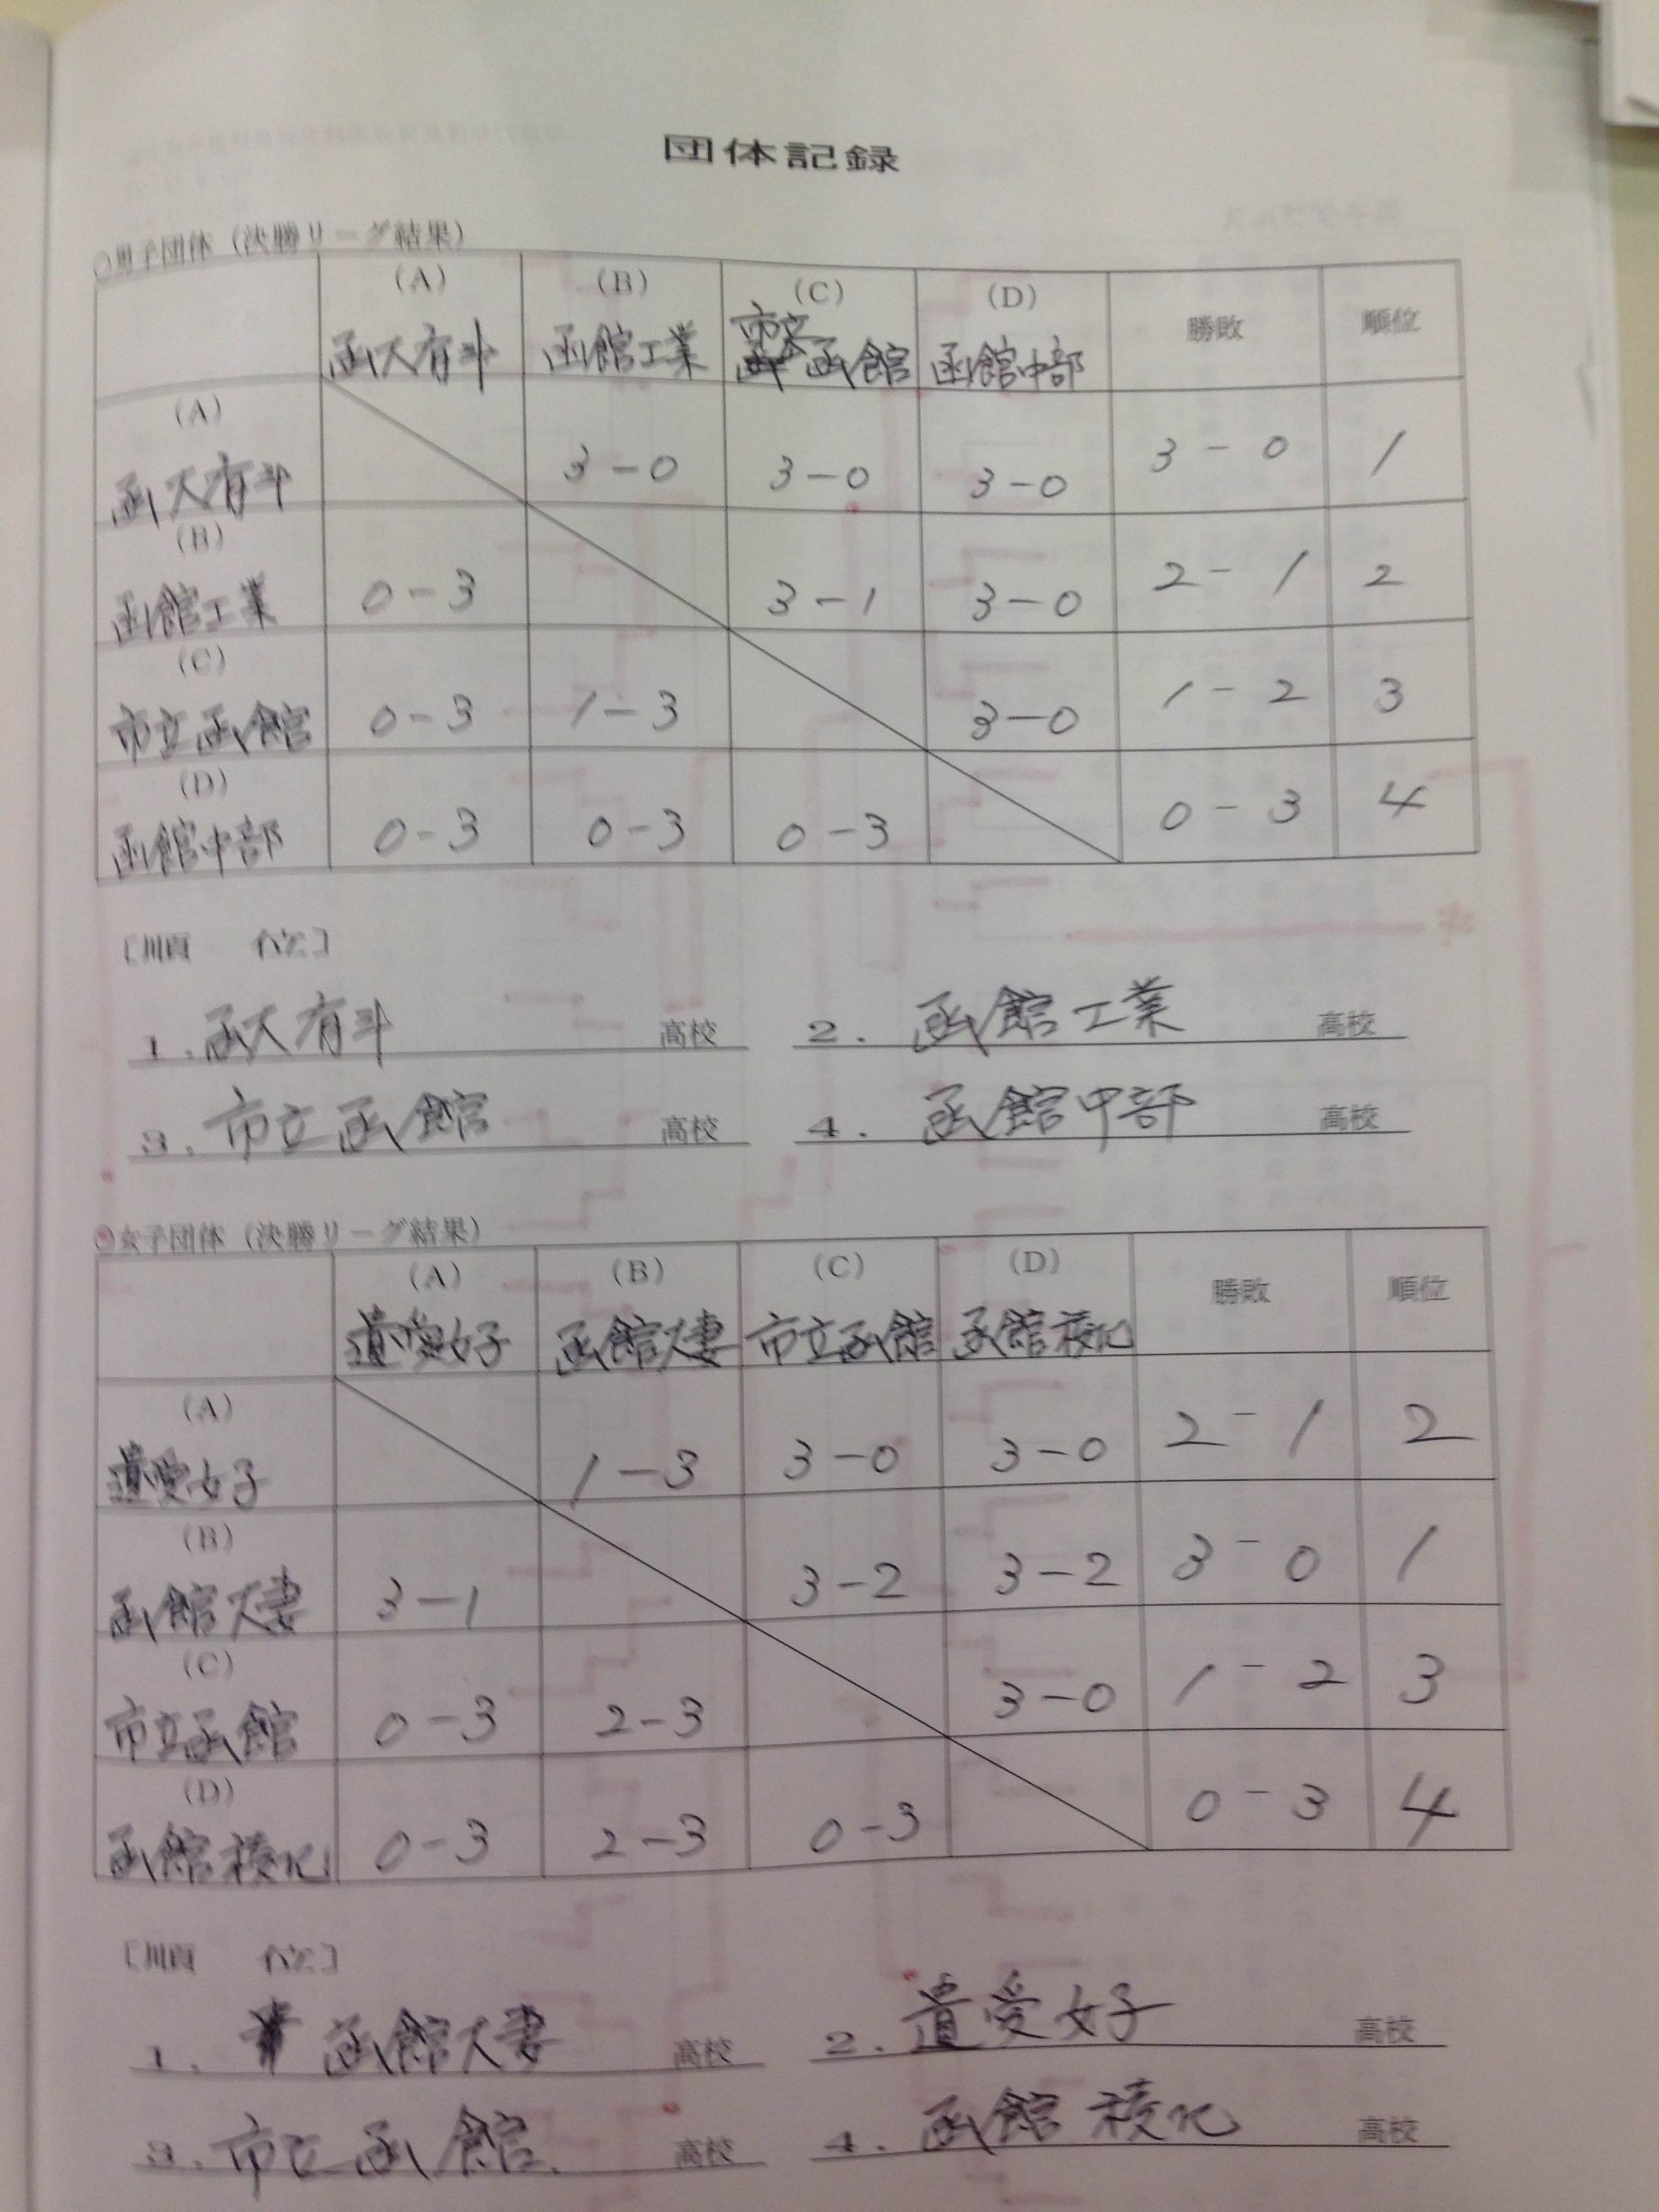 団体記録
○男子団体（決勝リーグ結果）
(A) (B) (C) (D)
函大有斗 函館工業 市立函館 函館中部 勝敗 順位
(A)
函大有斗 3-0 3-0 3-0 3-0 1
(B)
函館工業 0-3 3-1 3-0 2-1 2
(C)
市立函館 0-3 1-3 3-0 1-2 3
(D)
函館中部 0-3 0-3 0-3 0-3 4
〔順 位〕
1. 函大有斗 高校 2. 函館工業 高校
3. 市立函館 高校 4. 函館中部 高校
○女子団体（決勝リーグ結果）
(A) (B) (C) (D)
遺愛女子 函館大妻 市立函館 函館稜北 勝敗 順位
(A)
遺愛女子 1-3 3-0 3-0 2-1 2
(B)
函館大妻 3-1 3-2 3-2 3-0 1
(C)
市立函館 0-3 2-3 3-0 1-2 3
(D)
函館稜北 0-3 2-3 0-3 0-3 4
〔順 位〕
1. 函館大妻 高校 2. 遺愛女子 高校
3. 市立函館 高校 4. 函館稜北 高校